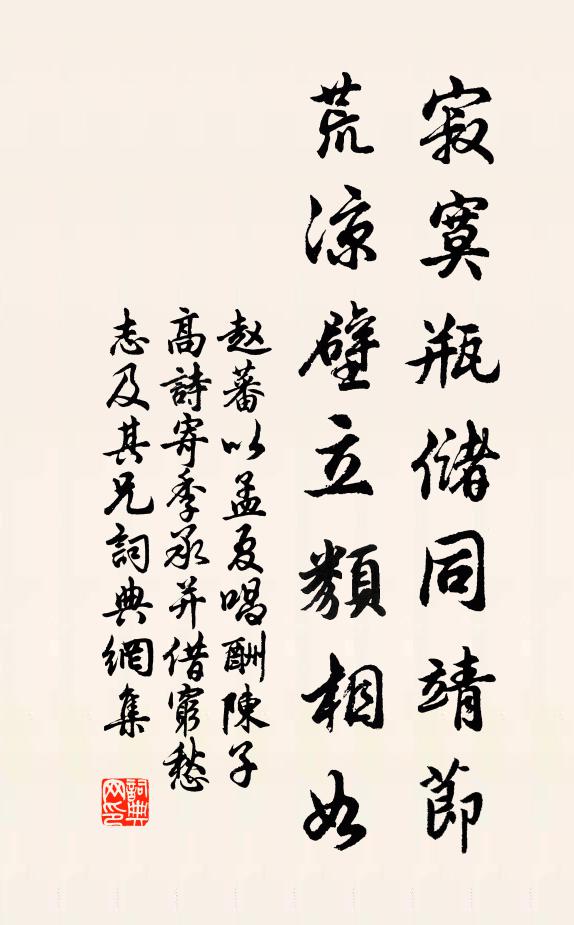 寂寞瓶儲同靖節
荒涼壁立類相如
赵蕃以孟夏唱酬陳子
高詩寄季承并借窮愁
志及其兄詞典網集
詞典
网印